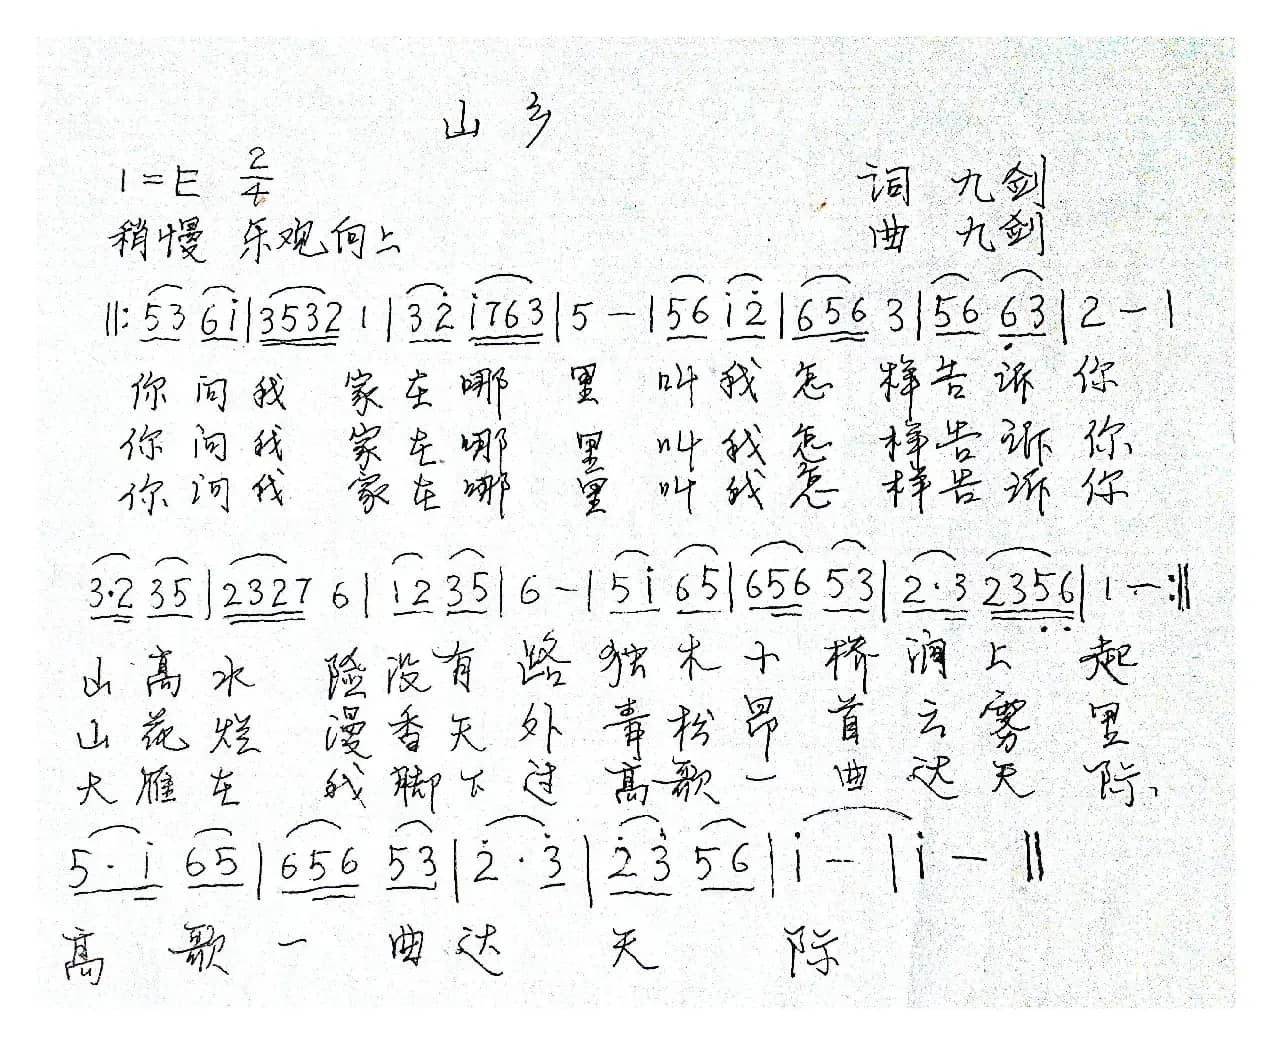 山乡
1=E 2/4
词 九剑
稍慢 乐观向上
曲 九剑
||: 53 6i | 3532 1 | 32̇ i763 | 5 - | 56 i2̇ | 656 3 | 56 6̣3 | 2 - |
你问我 家在哪 里 叫我怎 样告诉 你
你问我 家在哪 里 叫我怎 样告诉 你
你问我 家在哪 里 叫我怎 样告诉 你
3·2 35 | 2327 6 | 12 35 | 6 - | 5i 65 | 656 53 | 2·3 235̣6̣ | 1 - :||
山高水 险没有 路 独木小 桥涧上 起
山花烂 漫香天 外 青松昂 首云雾 里
大雁在 我脚下 过 高歌一 曲达天 际、
5·i 65 | 656 53 | 2̇·3̇ | 2̇3̇ 56 | i - | i - ||
高 歌一 曲达 天 际